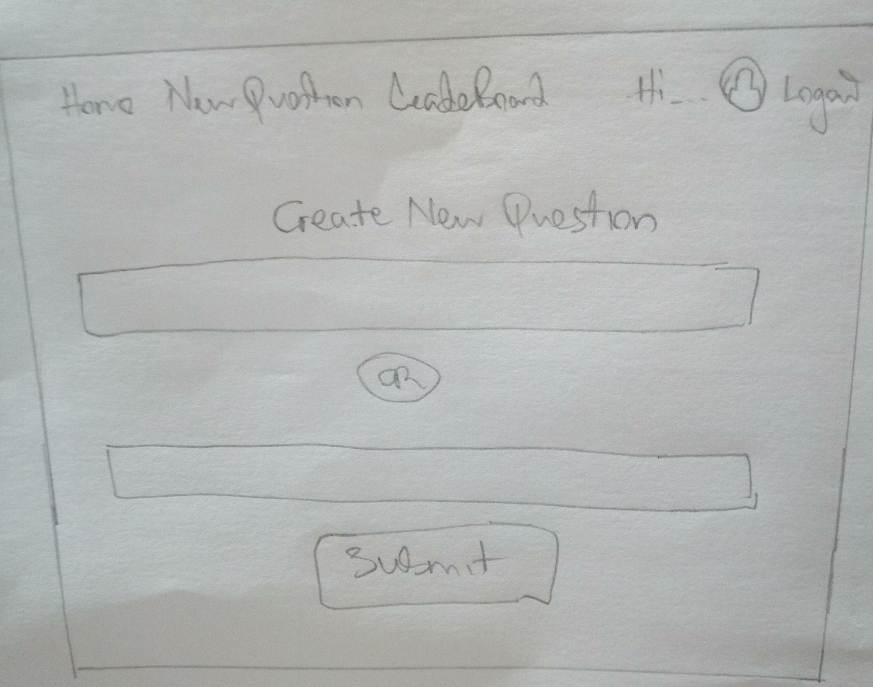 Home New Question LeadeBoard Hi_... Logout
Create New Question
OR
Submit